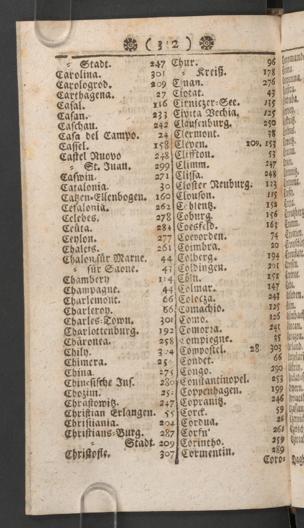 ( 312 )
= Stadt. 247
Carolina. 301
Carologrod. 209
Carthagena. 27
Casal. 116
Casan. 233
Caschau. 242
Casa del Campo. 24
Cassel. 158
Castel Nuovo 248
= St. Juan. 299
Caswin. 271
Catalonia. 30
Catzen-Ellenbogen. 160
Cefalonia. 262
Celebes. 278
Ceüta. 284
Ceylon. 277
Chalets. 261
Chalon für Marne. 44
= für Saone. 43
Chambery
Champagne. 44
Charlemont. 66
Charleroy. 66
Charles-Town. 301
Charlottenburg. 192
Chäronea. 258
Chily. 304
Chimera.
China. 275
Chinesische Ins. 280
Chozim.
Chrastowitz. 247
Christian Erlangen. 55
Christiania. 204
Christians-Burg. 287
= Stadt. 209
Christofle. 307
Chur. 96
= Kreiß. 178
Cinan. 276
Ciotat. 43
Cirnitzer-See. 135
Civita Vechia. 125
Clausenburg. 250
Clermont. 38
Cleven. 109. 153
Cliffton. 53
Climm. 247
Clissa. 248
Closter Neuburg. 123
Clouson. 115
Coblentz. 152
Coburg. 156
Coesfeld. 163
Coevorden. 74
Coimbra. 20
Colberg. 194
Coldingen. 201
Cöln. 151
Colmar. 147
Colocza. 243
Comachio. 125
Como.
Comorra. 241
Compiegne. 35
Compostel. 28. 303
Condet. 66
Congo. 290
Constantinopel. 253
Coppenhagen. 199
Copranitz. 246
Corck. 59
Cordua. 26
Corfu' 261
Corintho. 259
Cormentin. 289
Coro=